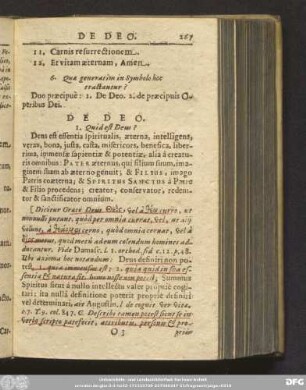 DE DEO. 267
11. Carnis resurrectionem.
12. Et vitam æternam, Amen.
6. Quæ generatim in Symbolo hoc
tractantur?
Duo præcipuè: 1. De Deo. 2. de præcipuis O-
peribus Dei.
DE DEO.
1. Quid est Deus?
Deus est essentia spiritualis, æterna, intelligens,
verax, bona, justa, casta, misericors, benefica, liber-
rima, immensæ sapientiæ & potentiæ, alia à creatu-
ris omnibus: PATER æternus, qui filium suum, imagi-
nem suam ab æterno genuit; & FILIUS, imago
Patris coæterna; & SPIRITUS SANCTUS à Patre
& Filio procedens; creator, conservator, redem-
tor & sanctificator omnium.
[Dicitur Græcè Deus
nonnulli putant, quòd per omnia currat,
cerno, quòd omnia cernat,
metus, quòd metu adeum colendum homines ad-
ducantur. Vide Damasc. l. 1. orthod. fid. c. 12. p. 48.
Ubi anima hoc notandum: Deus definiri non po-
test, 1. quia immensus est: 2. quia quid in sua es-
sentia & natura sit, homo nosse non potest. Summus
Spiritus sicut à nullo intellectu valet propriè cogi-
tari: ita nullâ definitione poterit propriè definiri
vel determinari, ait Augustin.
Describi tamen potest sicut se in
verbo scripto patefecit, attributis, personis & pro-
priis